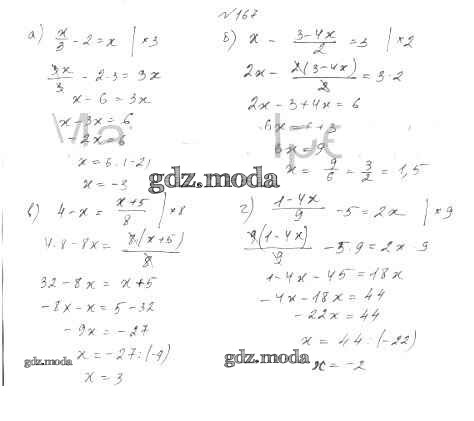 №167
а) x/3 - 2 = x | *3
3x/3 - 2·3 = 3x
x - 6 = 3x
x - 3x = 6
-2x = 6
x = 6:(-2)
x = -3
б) x - (3-4x)/2 = 3 | *2
2x - 2(3-4x)/2 = 3·2
2x - 3 + 4x = 6
6x = 6+3
6x = 9
x = 9/6 = 3/2 = 1,5
gdz.moda
в) 4 - x = (x+5)/8 | *8
4·8 - 8x = 8·(x+5)/8
32 - 8x = x+5
-8x - x = 5 - 32
-9x = -27
x = -27:(-9)
x = 3
gdz.moda
г) (1-4x)/9 - 5 = 2x | *9
9(1-4x)/9 - 5·9 = 2x·9
1 - 4x - 45 = 18x
-4x - 18x = 44
-22x = 44
x = 44:(-22)
gdz.moda
x = -2